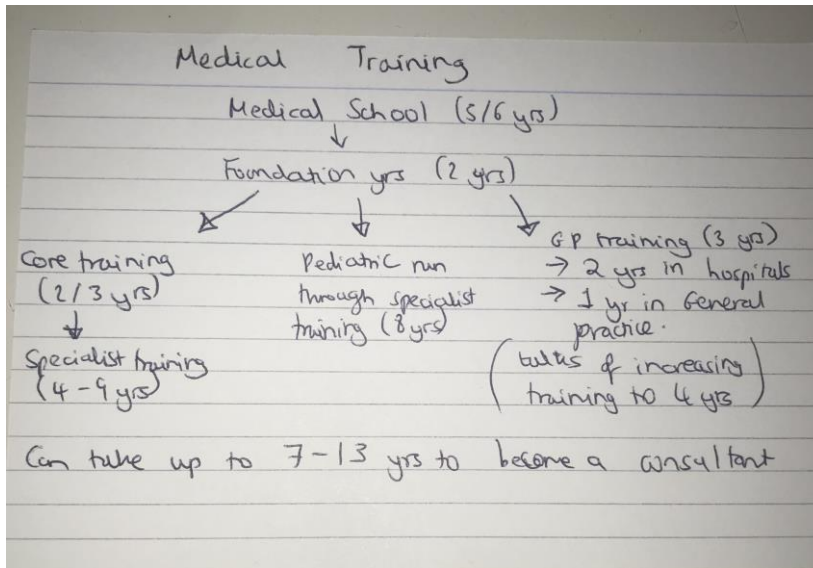 Medical Training
Medical School (5/6 yrs)
↓
Foundation yrs (2 yrs)
Core training
(2/3 yrs)
↓
Specialist training
(4-9 yrs)
Pediatric run
through specialist
training (8 yrs)
GP training (3 yrs)
→ 2 yrs in hospitals
→ 1 yr in General
practice.
(talks of increasing
training to 4 yrs)
Can take up to 7-13 yrs to become a consultant